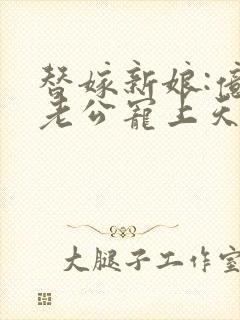 替嫁新娘:
老公宠上天
大腿子工作室